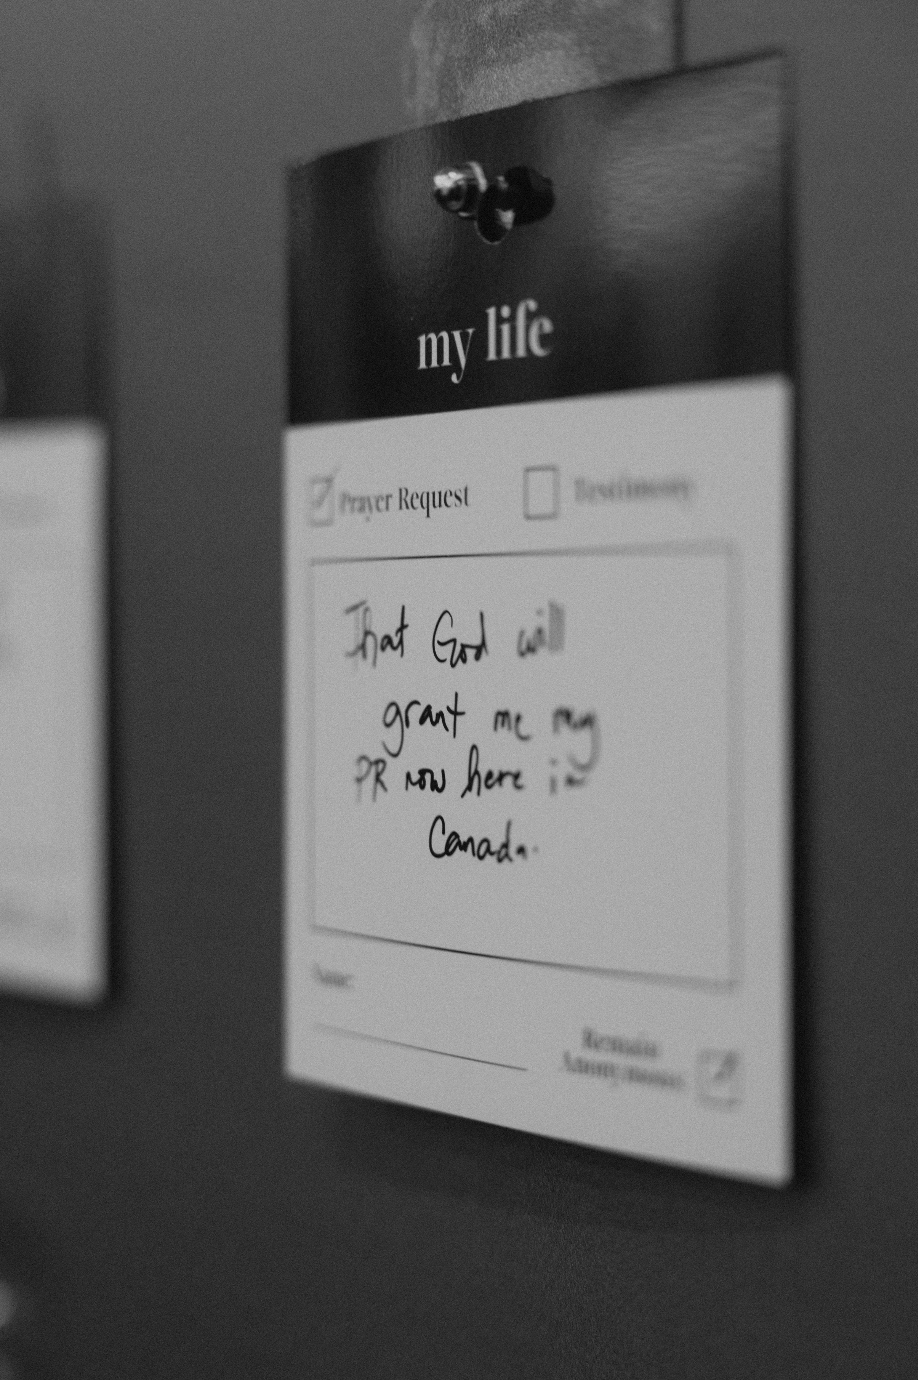 my life
Prayer Request
Testimony
That God will
grant me my
PR now here in
Canada.
Name:
Remain
Anonymous